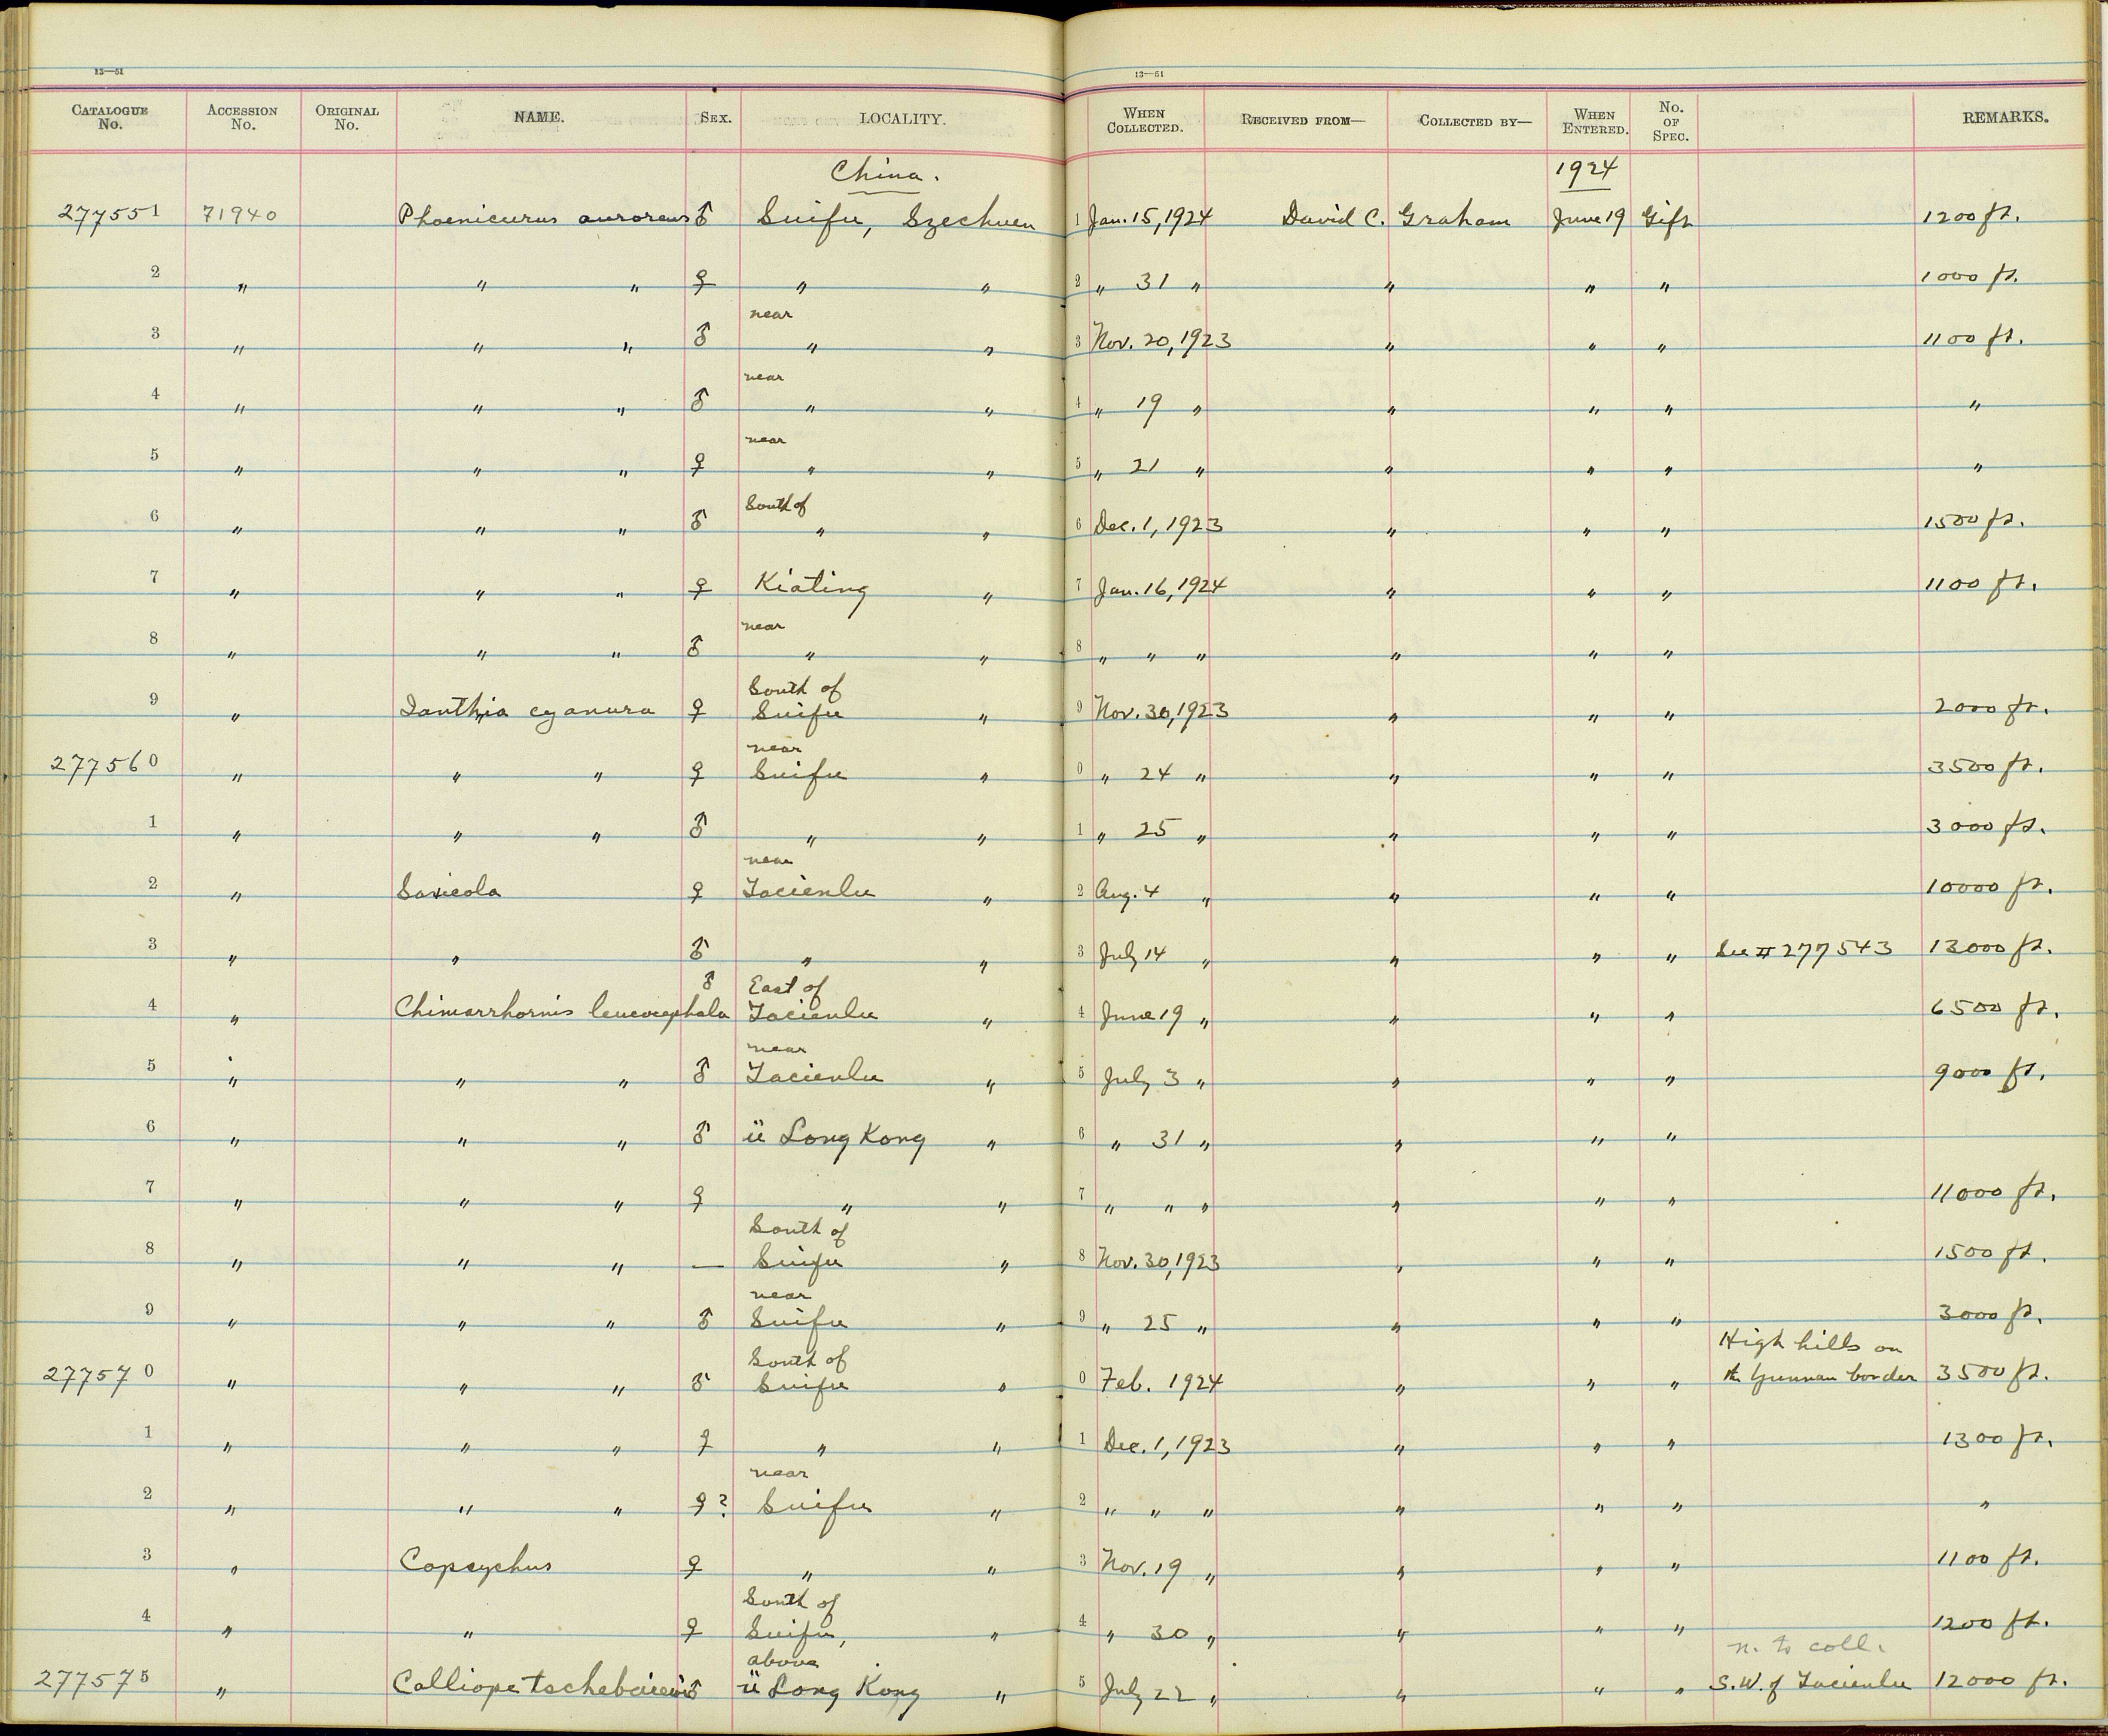 13—61 13—61
CATALOGUE No. ACCESSION No. ORIGINAL No. NAME. SEX. LOCALITY. WHEN COLLECTED. RECEIVED FROM— COLLECTED BY— WHEN ENTERED. No. OF SPEC. REMARKS.
China. 1924
277551 71940 Phoenicurus auroreus ♂ Suifu, Szechuen 1 Jan. 15, 1924 David C. Graham June 19 Gift 1200 ft.
2 " " " ♀ " " 2 " 31 " " " " 1000 ft.
near
3 " " " ♂ " " 3 Nov. 20, 1923 " " " 1100 ft.
near
4 " " " ♂ " " 4 " 19 " " " " "
near
5 " " " ♀ " " 5 " 21 " " " " "
South of
6 " " " ♂ " " 6 Dec. 1, 1923 " " " 1500 ft.
7 " " " ♀ Kiating " 7 Jan. 16, 1924 " " " 1100 ft.
near
8 " " " ♂ " " 8 " " " " " "
South of
9 " Ianthia cyanura ♀ Suifu " 9 Nov. 30, 1923 " " " 2000 ft.
near
277560 " " " ♀ Suifu " 0 " 24 " " " " 3500 ft.
1 " " " ♂ " " 1 " 25 " " " " 3000 ft.
near
2 " Saxicola ♀ Tacienlu " 2 Aug. 4 " " " " 10000 ft.
3 " " ♂ " " 3 July 14 " " " " See # 277543 13000 ft.
♂ East of
4 " Chimarrhornis leucocephala Tacienlu " 4 June 19 " " " " 6500 ft.
near
5 " " " ♂ Tacienlu " 5 July 3 " " " " 9000 ft.
6 " " " ♂ ü Long Kong " 6 " 31 " " " "
7 " " " ♀ " " 7 " " " " " " 11000 ft.
South of
8 " " " — Suifu " 8 Nov. 30, 1923 " " " 1500 ft.
near
9 " " " ♂ Suifu " 9 " 25 " " " " 3000 ft.
South of High hills on
277570 " " " ♂ Suifu " 0 Feb. 1924 " " " the Yunnan border 3500 ft.
1 " " " ♀ " " 1 Dec. 1, 1923 " " " 1300 ft.
near
2 " " " ♀? Suifu " 2 " " " " " " "
3 " Copsychus ♀ " " 3 Nov. 19 " " " " 1100 ft.
South of
4 " " ♀ Suifu, " 4 " 30 " " " " 1200 ft.
above n. to coll.
277575 " Calliope tschebaiewi ♂ ü Long Kong " 5 July 22 " " " " S.W. of Tacienlu 12000 ft.